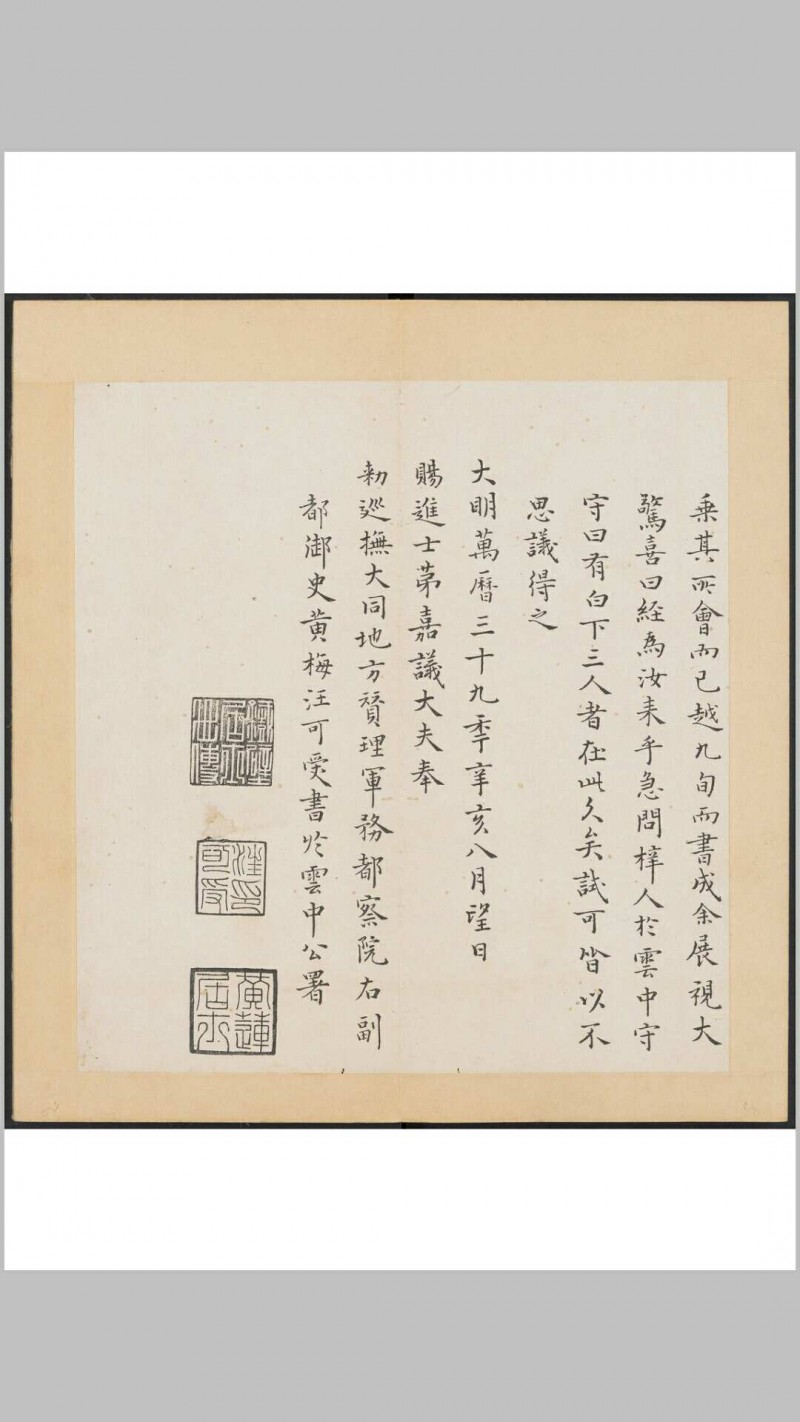 乗其所會而已越九旬而書成余展視大
驚喜曰経爲汝来乎急問梓人於雲中守
守曰有白下三人者在此久矣試可皆以不
思議得之
大明萬曆三十九秊辛亥八月望日
賜進士苐嘉議大夫奉
勑巡撫大同地方賛理軍務都察院右副
都御史黄梅汪可受書於雲中公署
汪可受印
黄蓮居士